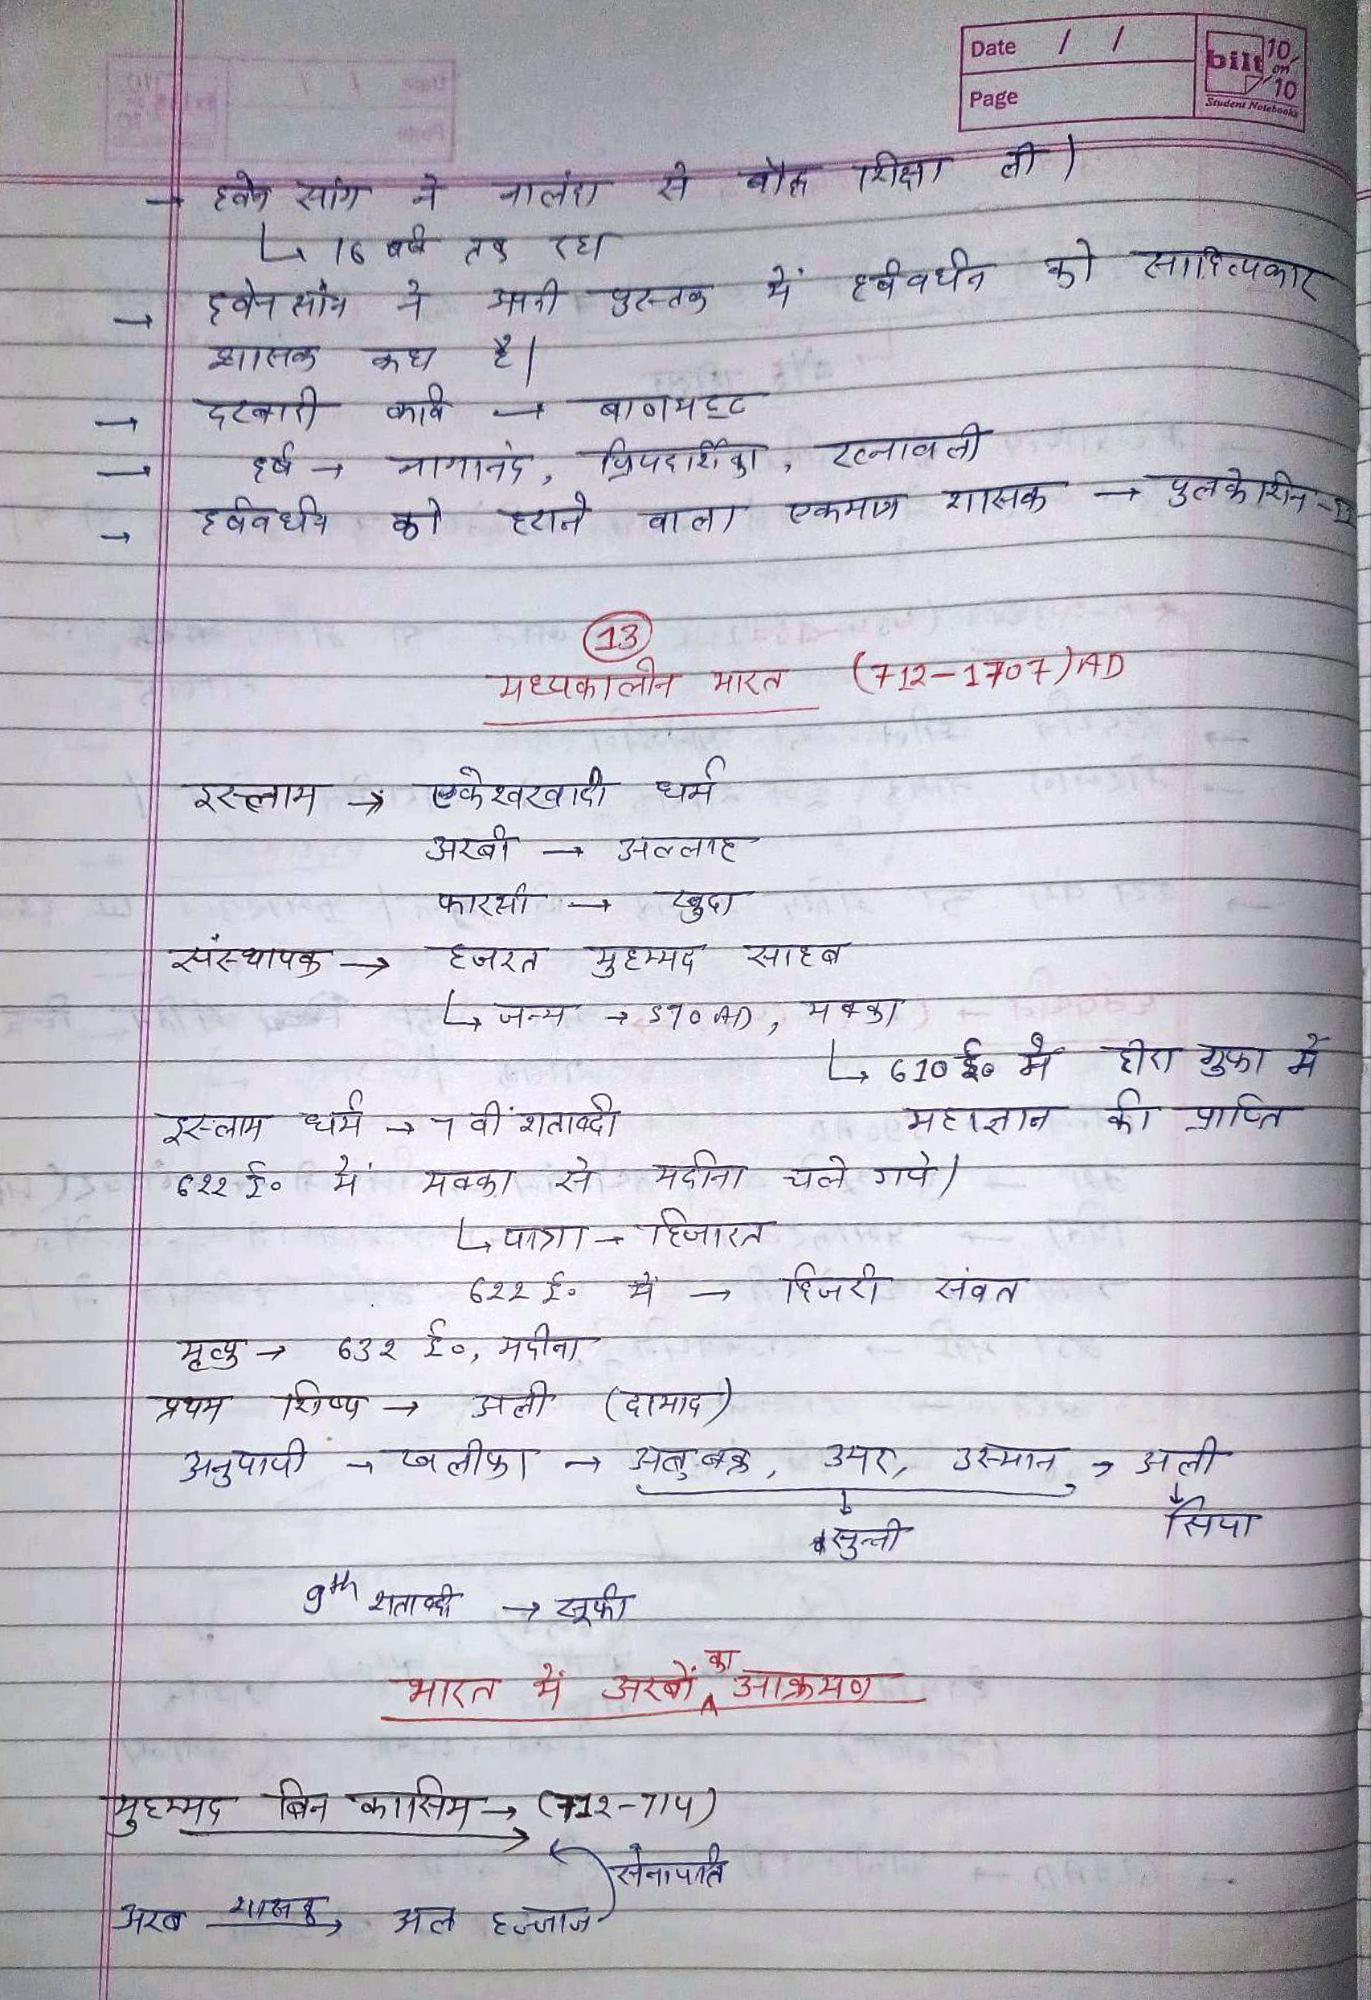 Date / /
Page
bilt 10 on 10
Student Notebooks
→ ह्वेन सांग ने नालंदा से बौद्ध शिक्षा ली।
↳ 16 वर्ष तक रहा
→ ह्वेन सांग ने अपनी पुस्तक में हर्षवर्धन को साहित्यकार
शासक कहा है।
→ दरबारी कवि → बाणभट्ट
→ हर्ष → नागानंद, प्रियदर्शिका, रत्नावली
→ हर्षवर्धन को हराने वाला एकमात्र शासक → पुलकेशिन-II
13
मध्यकालीन भारत (712-1707) AD
इस्लाम → एकेश्वरवादी धर्म
अरबी → अल्लाह
फारसी → खुदा
संस्थापक → हजरत मुहम्मद साहब
↳ जन्म → 570 AD, मक्का
↳ 610 ई० में हीरा गुफा में
महाज्ञान की प्राप्ति
इस्लाम धर्म → 7 वीं शताब्दी
622 ई० में मक्का से मदीना चले गये।
↳ यात्रा → हिजारत
622 ई० में → हिजरी संवत
मृत्यु → 632 ई०, मदीना
प्रथम शिष्य → अली (दामाद)
अनुयायी → खलीफा → अबु बक्र, उमर, उस्मान, अली
↓ सुन्नी ↓ सिया
9th शताब्दी → सूफी
भारत में अरबों का आक्रमण
मुहम्मद बिन कासिम → (712-714)
सेनापति
अरब शासक → अल हज्जाज